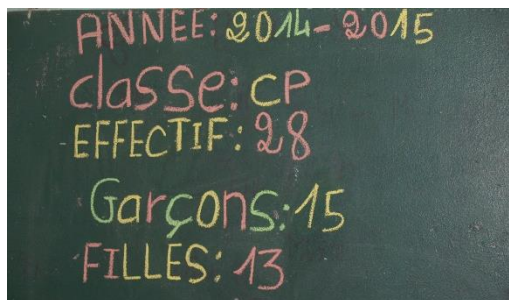 ANNEE: 2014-2015
classe: CP
EFFECTIF: 28
Garçons: 15
FILLES: 13